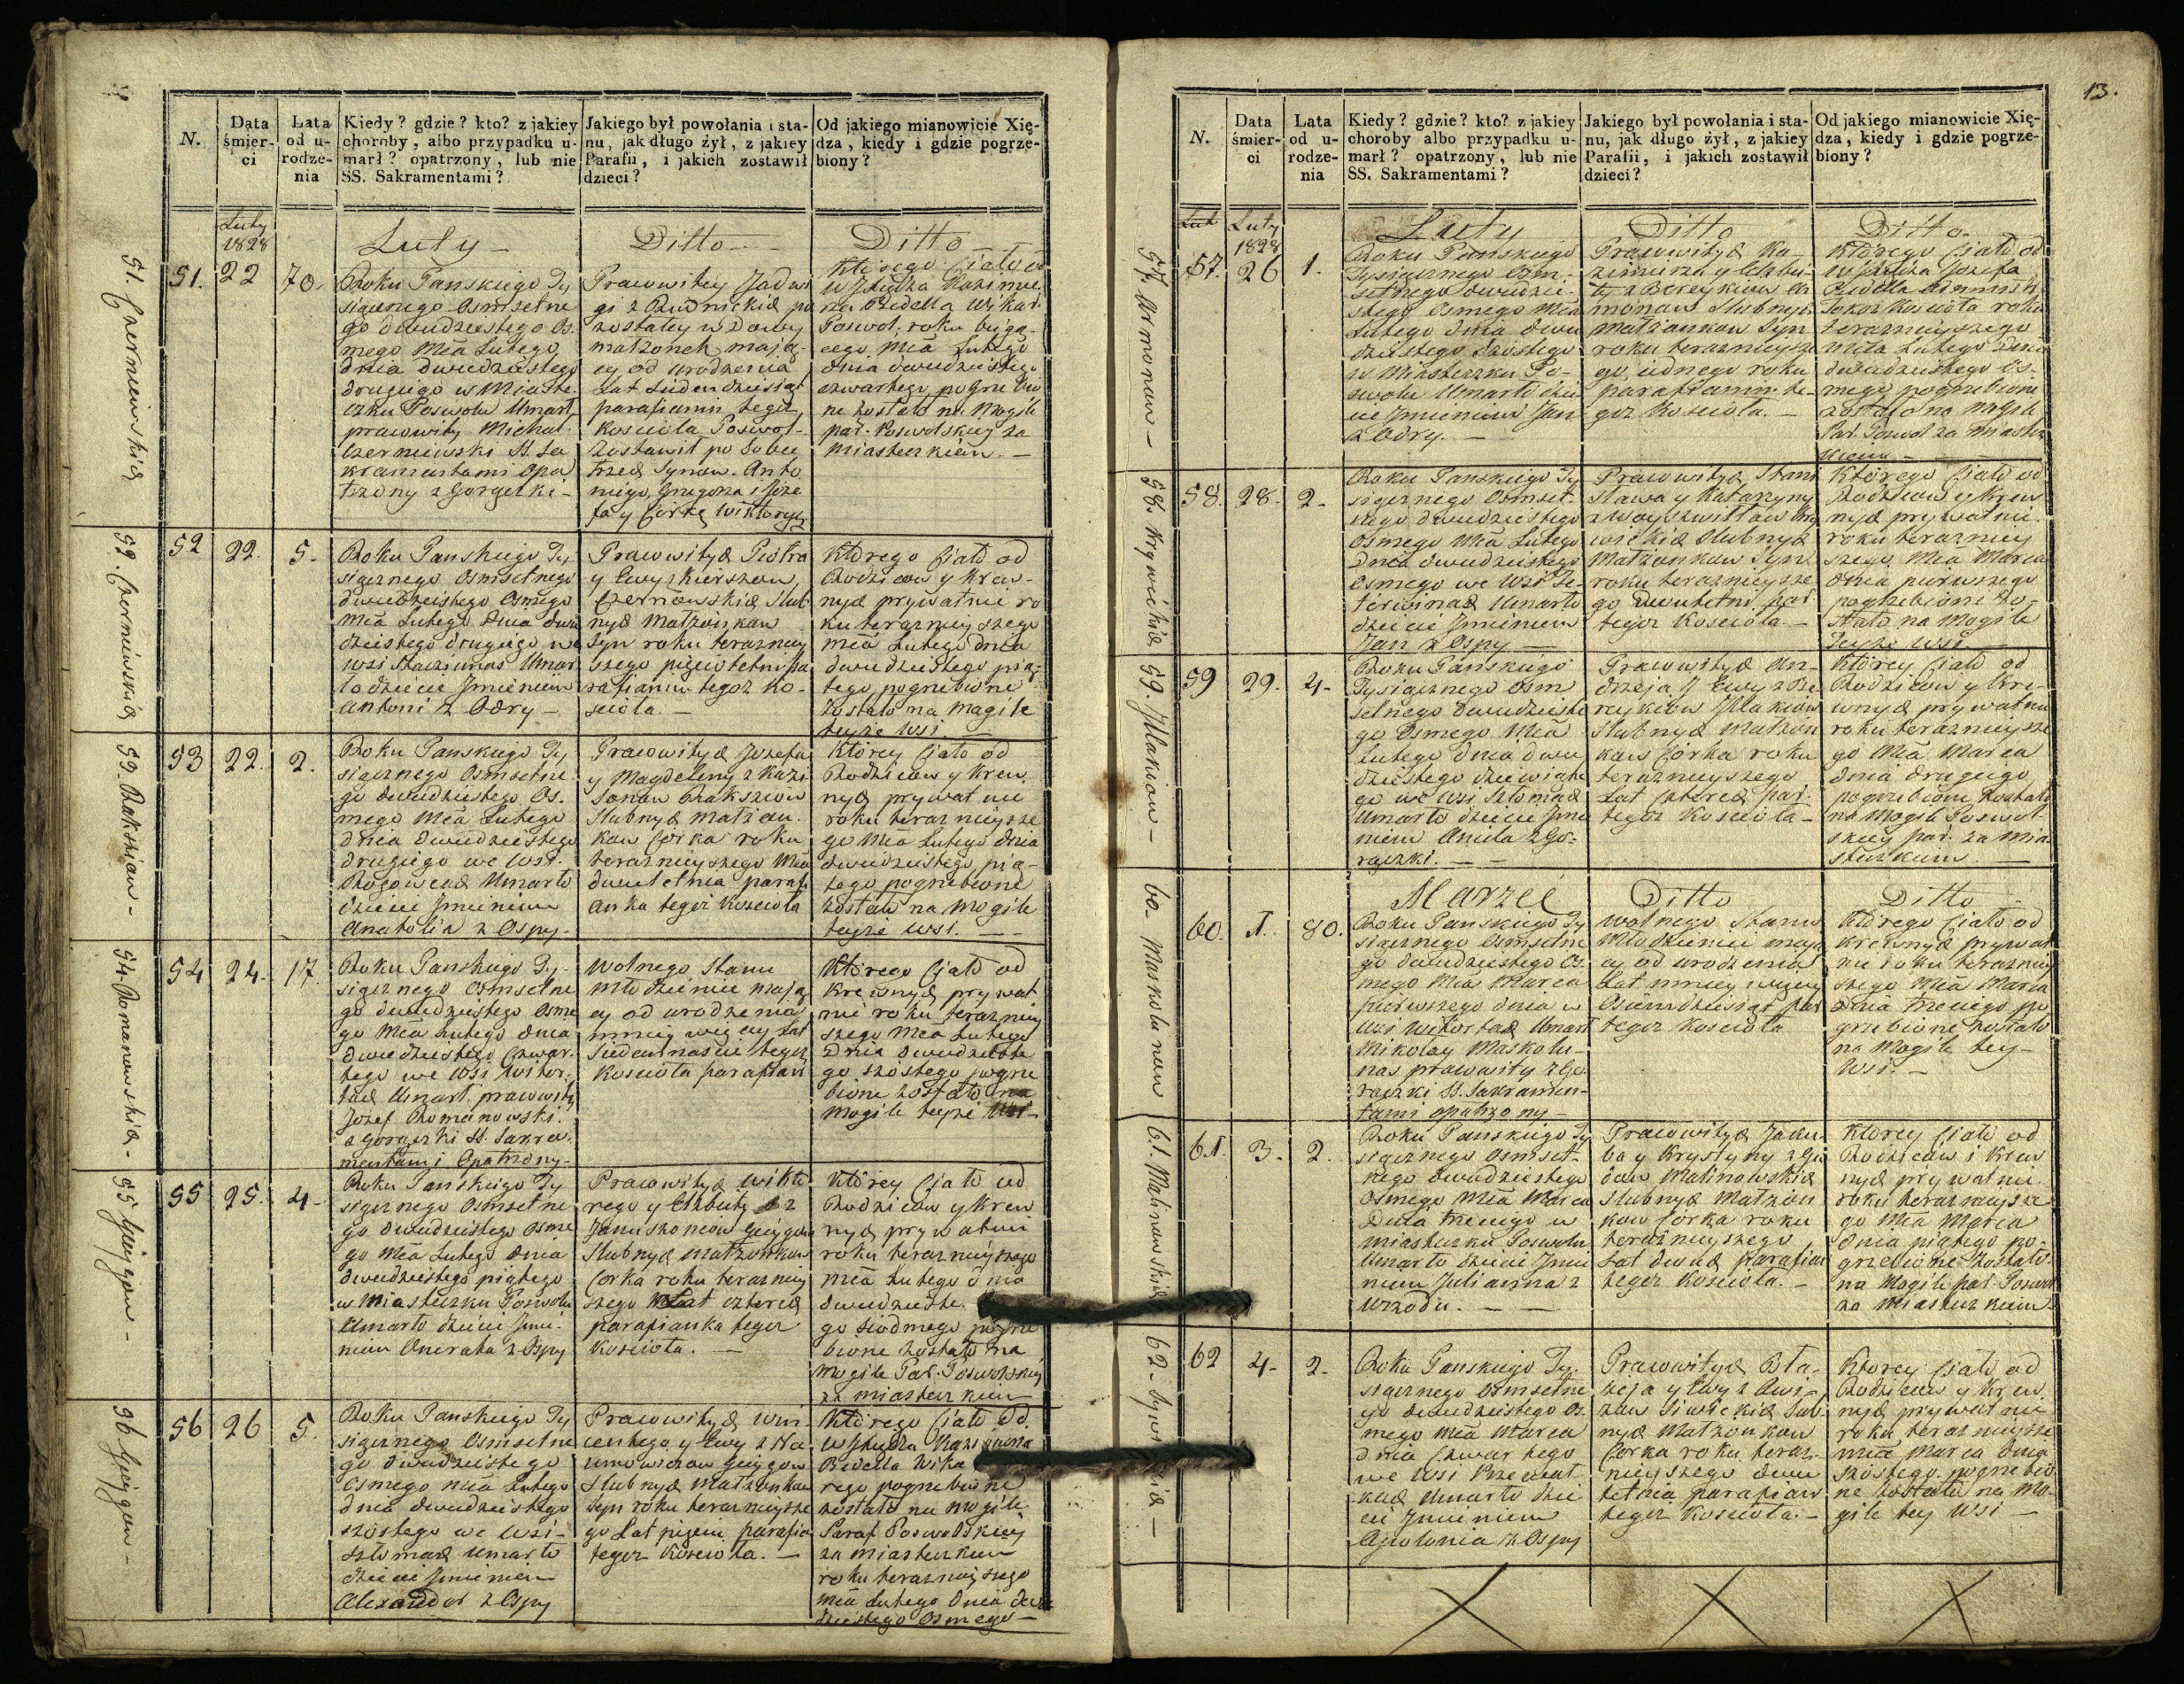 N.
Data śmier-ci
Lata od u-rodze-nia
Kiedy? gdzie? kto? z jakiey
choroby, albo przypadku u-
marł? opatrzony, lub nie
SS. Sakramentami?
Jakiego był powołania i sta-
nu, jak długo żył, z jakiey
Parafii, i jakich zostawił
dzieci?
Od jakiego mianowicie Xię-
dza, kiedy i gdzie pogrze-
biony?
Luty
1828
Luty
Ditto
Ditto
51. Czerniewskich
51.
22
70.
Roku Panskiego Ty
siącznego Osmsetne
go dwudziestego Os.
mego Mca Lutego
dnia dwudziestego
drugiego w Miaste.
czku Poswolu Umarł
prawowity Michał
Czerniewski SS. Sa
kramentami opa
trzony z Gorączki -
Prawowitey Jadwi
gi z Rudnickich po
zostałey wdowy
małżonek, mają-
cy od urodzenia
Lat Siedmdziesiąt
parafianin tegoż
Koscioła Poswol-
Zostawił po Sobie
trzech Synow. Anto
niego, Grzegorza i Joze
fa y Corkę Wiktoryą
Którego Ciało od
W JXiędza Kazimie
rza Bidella Wikar.
Poswol. roku bieżą-
cego Mca Lutego
dnia dwudziestego
czwartego pogrzebio
ne zostało na Mogile
par. Poswolskiey za
Miasteczkiem. -
52. Czerniewskich
52
22.
5.
Roku Panskiego Ty
siącznego Osmsetnego
dwudziestego Osmego
Mca Lutego Dnia dwu
dziestego drugiego we
Wsi Umar
ło dziecie Jmieniem
Antoni z Odry -
Prawowitych Piotra
y Ewy z Kierszow
Czerniewskich Slub
nych Małżonkow
Syn roku terazniey
szego pięcioletni pa
rafianin tegoż Ko-
scioła. -
Którego Ciało od
Rodzicow y Krew-
nych prywatnie ro
ku terazniey szego
mca Lutego dnia
dwudziestego pią-
tego pogrzebione
Zostało na Mogile
teyże Wsi. -
53. Rakszian -
53
22.
2.
Roku Panskiego Ty
siącznego Osmsetne
go dwudziestego Os.
mego Mca Lutego
dnia dwudziestego
drugiego we Wsi.
Umarło
dziecie Jmieniem
Anatolia z Ospy -
Prawowitych Jozefa
y Magdeleny z Kazi
Slubnych Małżon.
kow Corka roku
teraznieyszego Mca
dwuletnia parafi
anka tegoż Koscioła
Którey Ciało od
Rodzicow y Krew.
nych prywatnie
roku teraznieysze
go Mca Lutego dnia
dwudziestego pią-
tego pogrzebione
Zostało na Mogile
teyże Wsi. -
54. Romanowskich -
54
24.
17.
Roku Panskiego Ty-
siącznego Osmsetne
go dwudziestego Osme
go Mca Lutego dnia
dwudziestego Czwar.
tego we Wsi
Umarł. prawowity
Jozef Romanowski.
z gorączki SS. Sakra.
mentami Opatrzony -
Wolnego Stanu
młodzieniec mają
cy od urodzenia
mniey więcey Lat
Siedemnascie tegoż
Koscioła parafian
Którego Ciało od
Krewnych prywat
nie roku terazniey
szego Mca Lutego
Dnia dwudzieste
go szostego pogrze
bione zostało na
Mogile teyże Wsi -
55 Giergon -
55
25.
4 -
Roku Panskiego Ty
siącznego Osmsetne
go dwudziestego Osme
go Mca Lutego dnia
dwudziestego piątego
w Miasteczku Poswolu
Umarło dziecie Jmie.
niem Onerata z Ospy
Prawowitych Wikto
rego y Elżbiety z
Slubnych Małżonkow
Corka roku terazniey
szego Lat czterech
parafianka tegoż
Koscioła. -
Którey Ciało od
Rodzicow y Krew
nych prywatnie
roku teraznieyszego
Mca Lutego dnia
dwudzieste.
go siodmego pogrze
bione zostało na
Mogile Par. Poswolskiey
za miasteczkiem
56 Giergon -
56
26
5.
Roku Panskiego Ty
siącznego Osmsetne
go dwudziestego
Osmego Mca Lutego
dnia dwudziestego
szostego we Wsi -
Umarło
dziecie Jmieniem
Alexander z Ospy
Prawowitych Win
centego y Ewy z
Slubnych Małżonkow
Syn roku teraznieysze
go Lat pięciu parafia
tegoż Koscioła. -
Którego Ciało Od.
W JXiędza Kazimierza
Bidella Wika
rego pogrzebione
zostało na mogile
Paraf Poswolskiey
za miasteczkiem
roku teraznieyszego
Mca Lutego Dnia dwu
dziestego Osmego -
13.
N.
Data śmier-ci
Lata od u-rodze-nia
Kiedy? gdzie? kto? z jakiey
choroby albo przypadku u-
marł? opatrzony, lub nie
SS. Sakramentami?
Jakiego był powołania i sta-
nu, jak długo żył, z jakiey
Parafii, i jakich zostawił
dzieci?
Od jakiego mianowicie Xię-
dza, kiedy i gdzie pogrze-
biony?
Luty
1828
Luty
Ditto
Ditto
57. Ormonow -
57.
26
1.
Roku Panskiego
Tysiącznego Osm-
setnego dwudzie-
stego Osmego Mca
Lutego dnia dwu
dziestego Szostego
w Miasteczku Po-
swolu Umarło dzie
cie Jmieniem Jan
z Odry. -
Prawowitych Ka-
zimierza y Elżbie-
ty z Bereykow Or
monow Slubnych
Małżonkow Syn
roku teraznieysze
go, iednego roku
parafianin te-
goż Koscioła. -
Którego Ciało od
W JXiędza Jozefa
Bidella
roku
teraznieyszego
Mca Lutego Dnia
dwudziestego Os-
mego pogrzebione
zostało na Mogile
Par. Poswol za Miastecz
kiem -
58. Krywickich
58.
28.
2.
Roku Panskiego Ty
siącznego Osmset-
nego dwudziestego
Osmego Mca Lutego
Dnia dwudziestego
Osmego we Wsi
Umarło
dziecie Jmieniem
Jan z Ospy -
Prawowitych Stani
sława y Katarzyny
wickich Slubnych
Małżonkow Syn
roku teraznieysze
go Dwuletni par
tegoż Koscioła. -
Którego Ciało od
Rodzicow y Krew
nych prywatnie.
roku terazniey
szego Mca Marca
dnia pierwszego
pogrzebione zo-
stało na Mogile
Teyże Wsi. -
59. Jtakiow -
59
29.
4 -
Roku Panskiego
Tysiącznego Osm
setnego dwudzieste
go Osmego Mca
Lutego dnia dwu
dziestego dziewiąte
go we Wsi
Umarło dziecie Jmie
niem Aniela z Go-
rączki. -
Prawowitych An-
drzeja y Ewy z Be
reykow
Slubnych Małżon
kow Corka roku
teraznieyszego
Lat czterech par.
tegoż Koscioła -
Którey Ciało od
Rodzicow y Kre-
wnych prywatnie
roku teraznieysze
go Mca Marca
dnia drugiego
pogrzebione zostało
na Mogile Poswol-
skiey par. za mia
steczkiem -
Marzec
Ditto
Ditto
60. Maskolunow
60.
1.
80.
Roku Panskiego Ty
siącznego Osmsetne
go dwudziestego Os.
mego Mca Marca
pierwszego dnia w
Wsi Umarł
Mikołay Maskolu-
nas prawowity z Go
rączki SS. Sakramen-
tami opatrzony -
Wolnego Stanu
Młodzieniec mają
cy od urodzenia
Lat mniey więcey
Osiemdziesiąt par
tegoż Koscioła
Którego Ciało od
Krewnych prywat
nie roku terazniey
szego Mca Marca
Dnia trzeciego po
grzebione zostało
na Mogile tey-
Wsi. -
61. Malinowskich
61.
3.
2.
Roku Panskiego Ty
siącznego Osmset-
nego dwudziestego
Osmego Mca Marca
Dnia trzeciego w
miasteczku Poswolu
Umarło dziecie Jmie
niem Julianna z
Wrzodu. -
Prawowitych Jaku
ba y Krystyny z
Malinowskich
Slubnych Małżon
kow Corka roku
teraznieyszego
Lat dwuch parafian
tegoż Koscioła. -
Którey Ciało od
Rodzicow i Krew
nych prywatnie.
roku teraznieysze
go Mca Marca
dnia piątego po-
grzebione zostało
na Mogile par Poswol
za Miasteczkiem
62
62
4 -
2 -
Roku Panskiego Ty.
siącznego Osmsetne
go dwudziestego Os.
mego Mca Marca
dnia Czwartego
we Wsi
Umarło dzie
cie Jmieniem
Apolonia z Ospy
Prawowitych Bła-
żeja y Ewy z
Slub
nych Małżonkow
Corka roku teraz.
nieyszego dwu
letnia parafian
tegoż Koscioła. -
Którey Ciało od
Rodzicow y Krew.
nych prywatnie
roku teraznieysze
mca Marca Dnia
szostego pogrzebio
ne zostało na Mo-
gile tey Wsi -